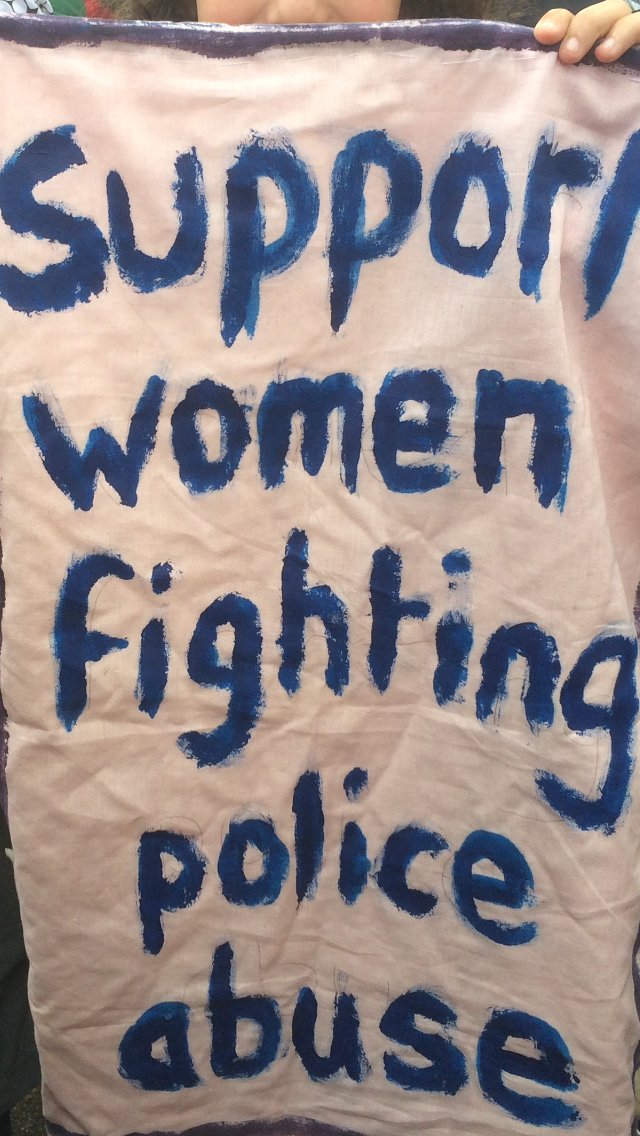 Support
women
fighting
police
abuse